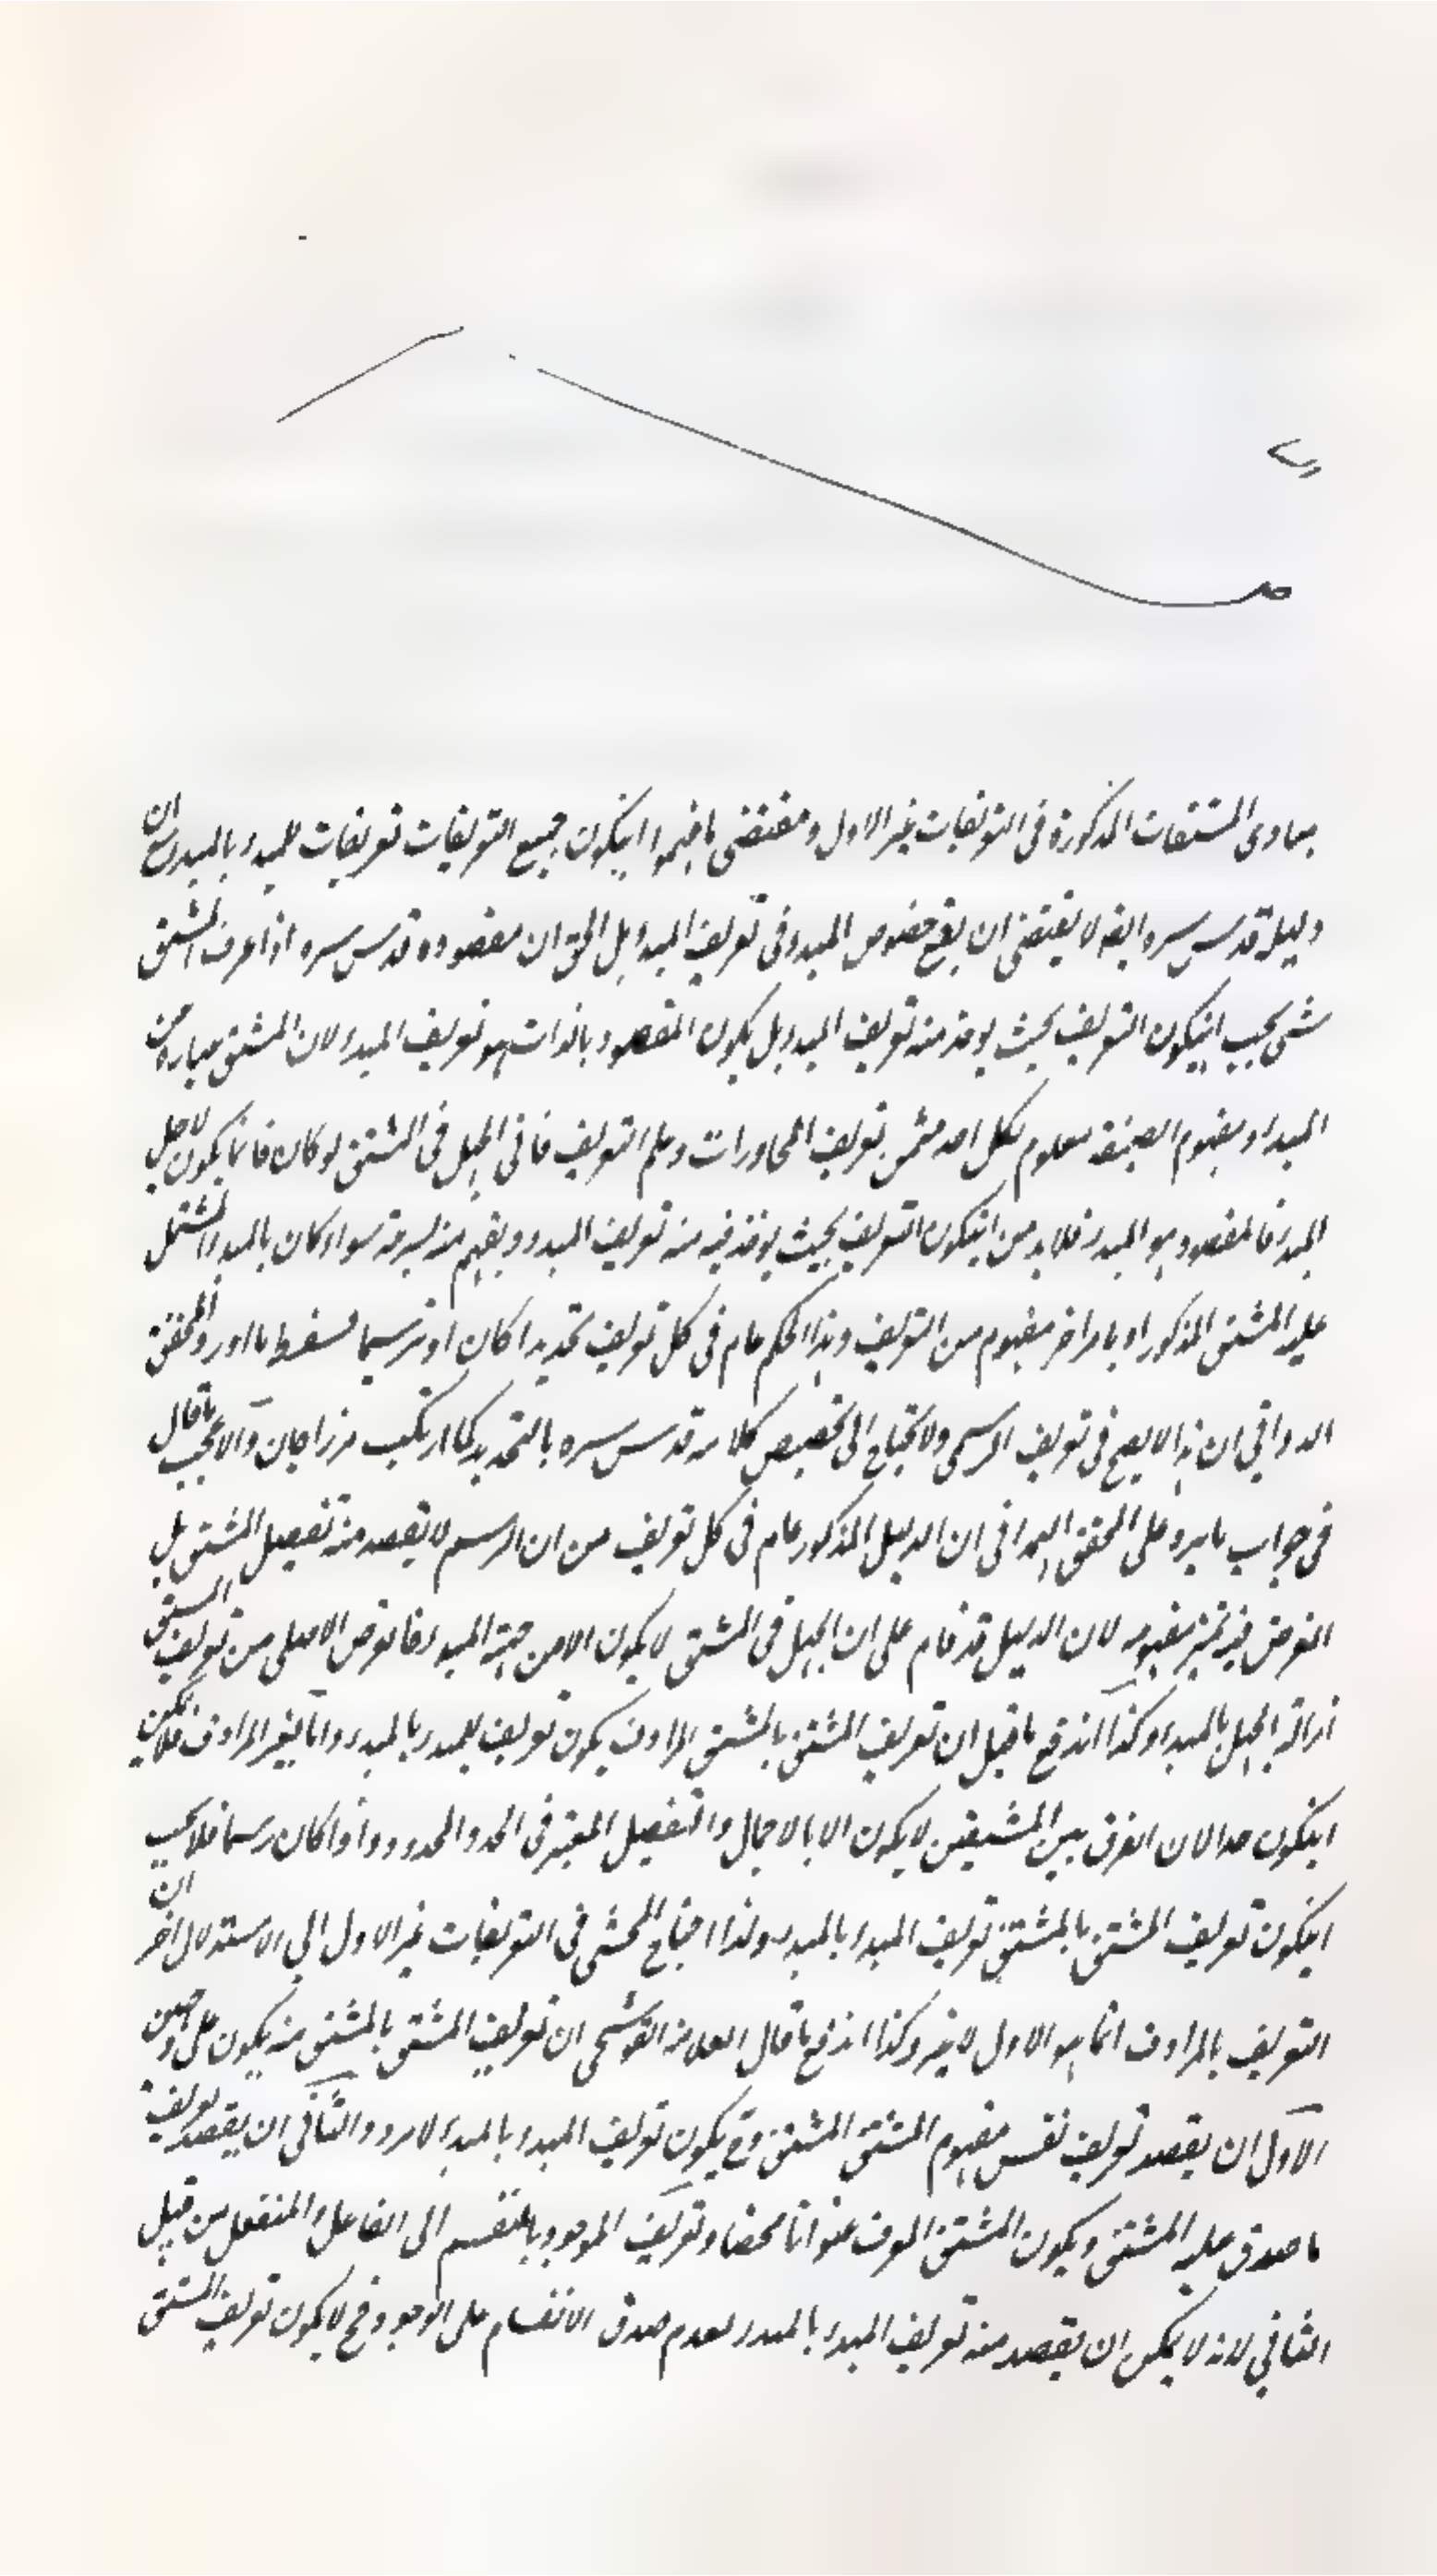 مبادى المشتقات المذكورة فى التعريفات غير الاول ومقتضى ما فهموا انيكون جميع التعريفات تعريفات للمبدء بالمبدء مع ان
دليله قدس سره ايضا لا يقتضى ان يقع خصوص المبدء فى تعريف المبدء بل الحق ان مقصوده قدس سره اذا عرف المشتق
بشئ يجب انيكون التعريف بحيث يوخذ منه تعريف المبدء بل يكون المقصود بالذات هو تعريف المبدء لان المشتق عبارة عن
المبدء ومفهوم الصيغة معلوم لكل احد بتعريف المحاورات وعلم التعريف فانى الجهل فى المشتق لو كان فانما يكون لاجل
المبدء فالمقصود هو المبدء فلابد من انيكون التعريف بحيث يوخذ فيه منه تعريف المبدء ويفهم منه لسرعة سواء كان بالمبدء المشتمل
عليه المشتق المذكور او بامر اخر مفهوم من التعريف وهذا الحكم عام فى كل تعريف تحديدا كان او ترسيما فسقط ما اورد المحقق
الدوانى ان هذا لا يصح فى تعريف الرسمى ولا يحتاج الى تخصيص كلامه قدس سره بالتحديد كما ارتكب مرزاجان والاعجب ما قال
فى جواب ما يرد على المحقق الدوانى ان الدليل المذكور عام فى كل تعريف من ان الرسم لا يقصد منه تفصيل المشتق بل
الغرض فيه تميز مفهومه لان الدليل قد قام على ان الجهل فى المشتق لا يكون الا من جهة المبدء فالغرض الاصلى من تعريف المشتق
ازالة الجهل بالمبدء وكذا اندفع ما قيل ان تعريف المشتق بالمشتق المرادف يكون تعريف للمبدء بالمبدء واما بغير المرادف فلا يمكن
انيكون حدا لان الفرق بين المشتقين لا يكون الا بالاجمال والتفصيل المعتبر فى الحد والمحدود واذا كان رسما فلا يجب
انيكون تعريف المشتق بالمشتق تعريف المبدء بالمبدء ولذا احتاج المحشى فى التعريفات غير الاول الى الاستدلال اخر ان
التعريف بالمرادف انما هو الاول لا غير وكذا اندفع ما قال العلامة القوشجى ان تعريف المشتق بالمشتق منه يكون على وجهين
الاول ان يقصد تعريف نفس مفهوم المشتق المشتق وح يكون تعريف المبدء بالمبدء لامرد والثانى ان يقصد تعريف
ما صدق عليه المشتق ويكون المشتق المعرف عنوانا محضا وتعريف الموجود بالمنقسم الى الفاعل والمنفعل من قبيل
الثانى لانه لا يمكن ان يقصد منه تعريف المبدء بالمبدء لعدم صدق الانقسام على الوجود وح لا يكون تعريف المشتق